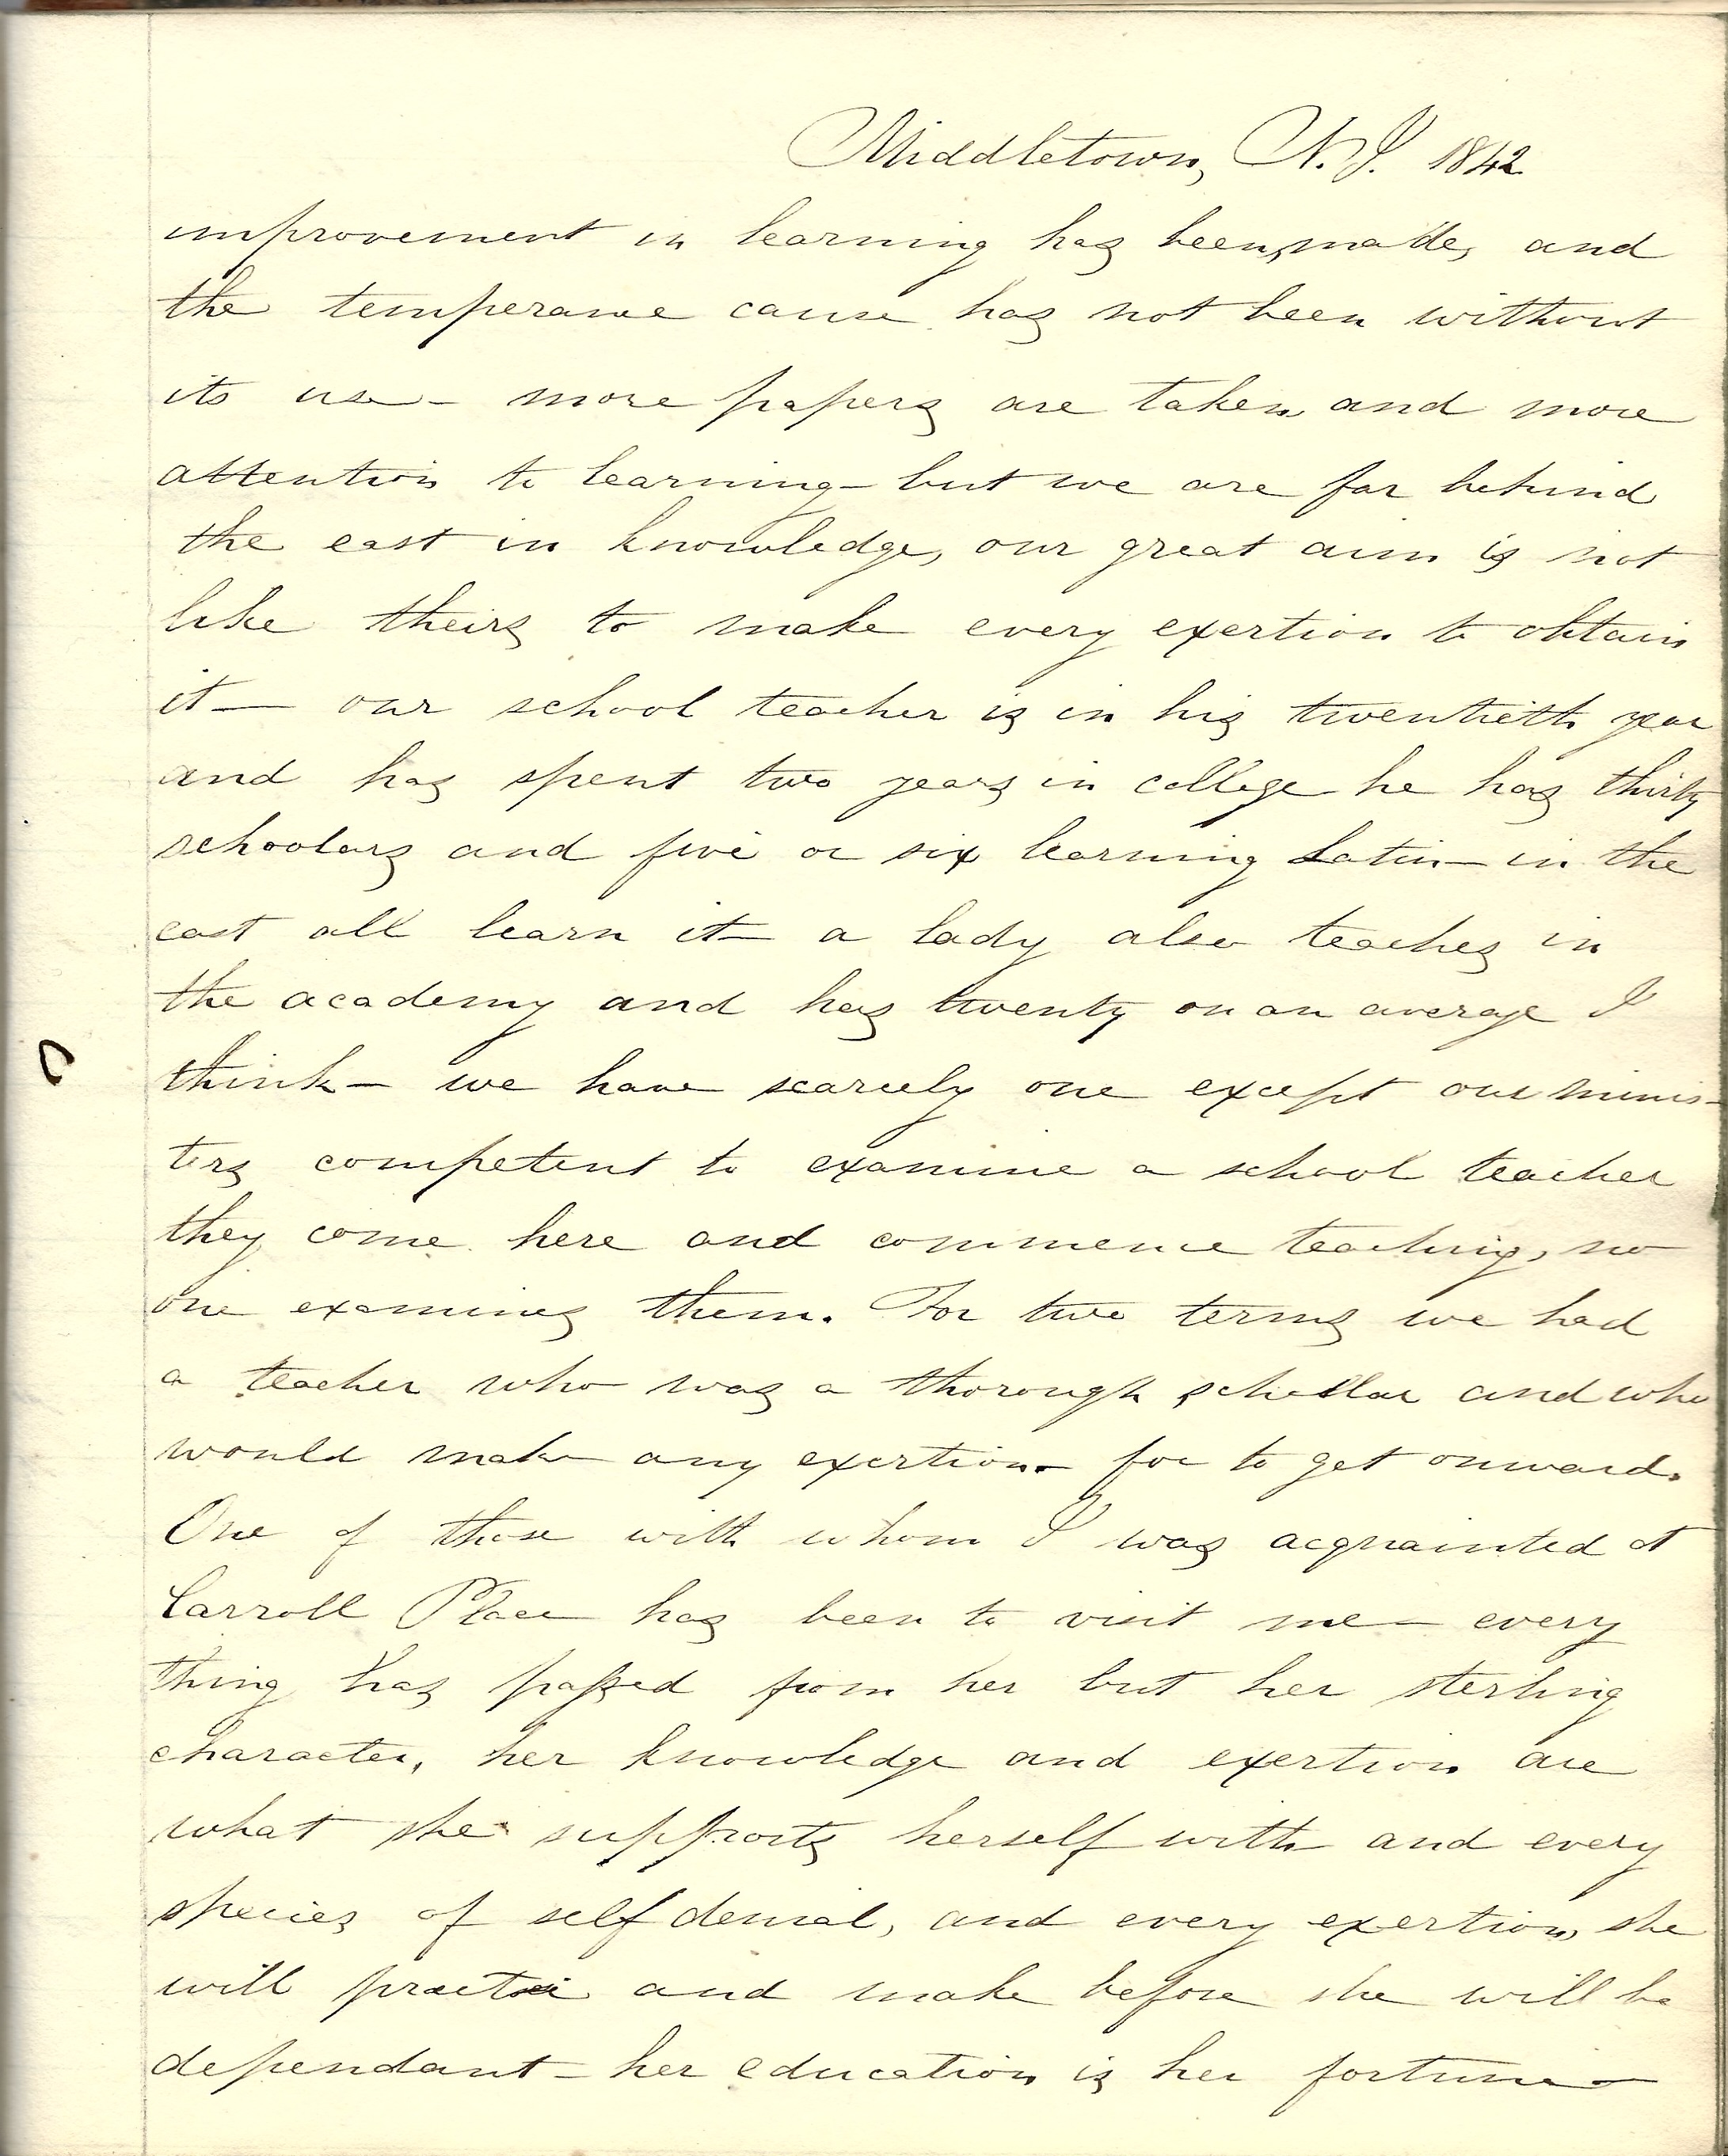 Middletown, N.J. 1842
improvement in learning has been, made, and
the temperance cause has not been without
its use - more papers are taken and more
attention to learning - but we are far behind
the east in knowledge, our great aim is not
like theirs to make every exertion to obtain
it - our school teacher is in his twentieth year
and has spent two years in college he has thirty
schoolars and five or six learning Latin - in the
east all learn it - a lady also teaches in
the academy and has twenty on an average I
think - we have scarcely one except our minis-
ters competent to examine a school teacher
they come here and commence teaching, no
one examines them. For two terms we had
a teacher who was a thorough schollar and who
would make any exertion - for to get onward.
One of those with whom I was acquainted at
Carroll Place has been to visit me - every
thing has passed from her but her sterling
character, her knowledge and exertion are
what she supports herself with and every
species of self denial, and every exertion, she
will practice and make before she will be
dependant - her education is her fortune -